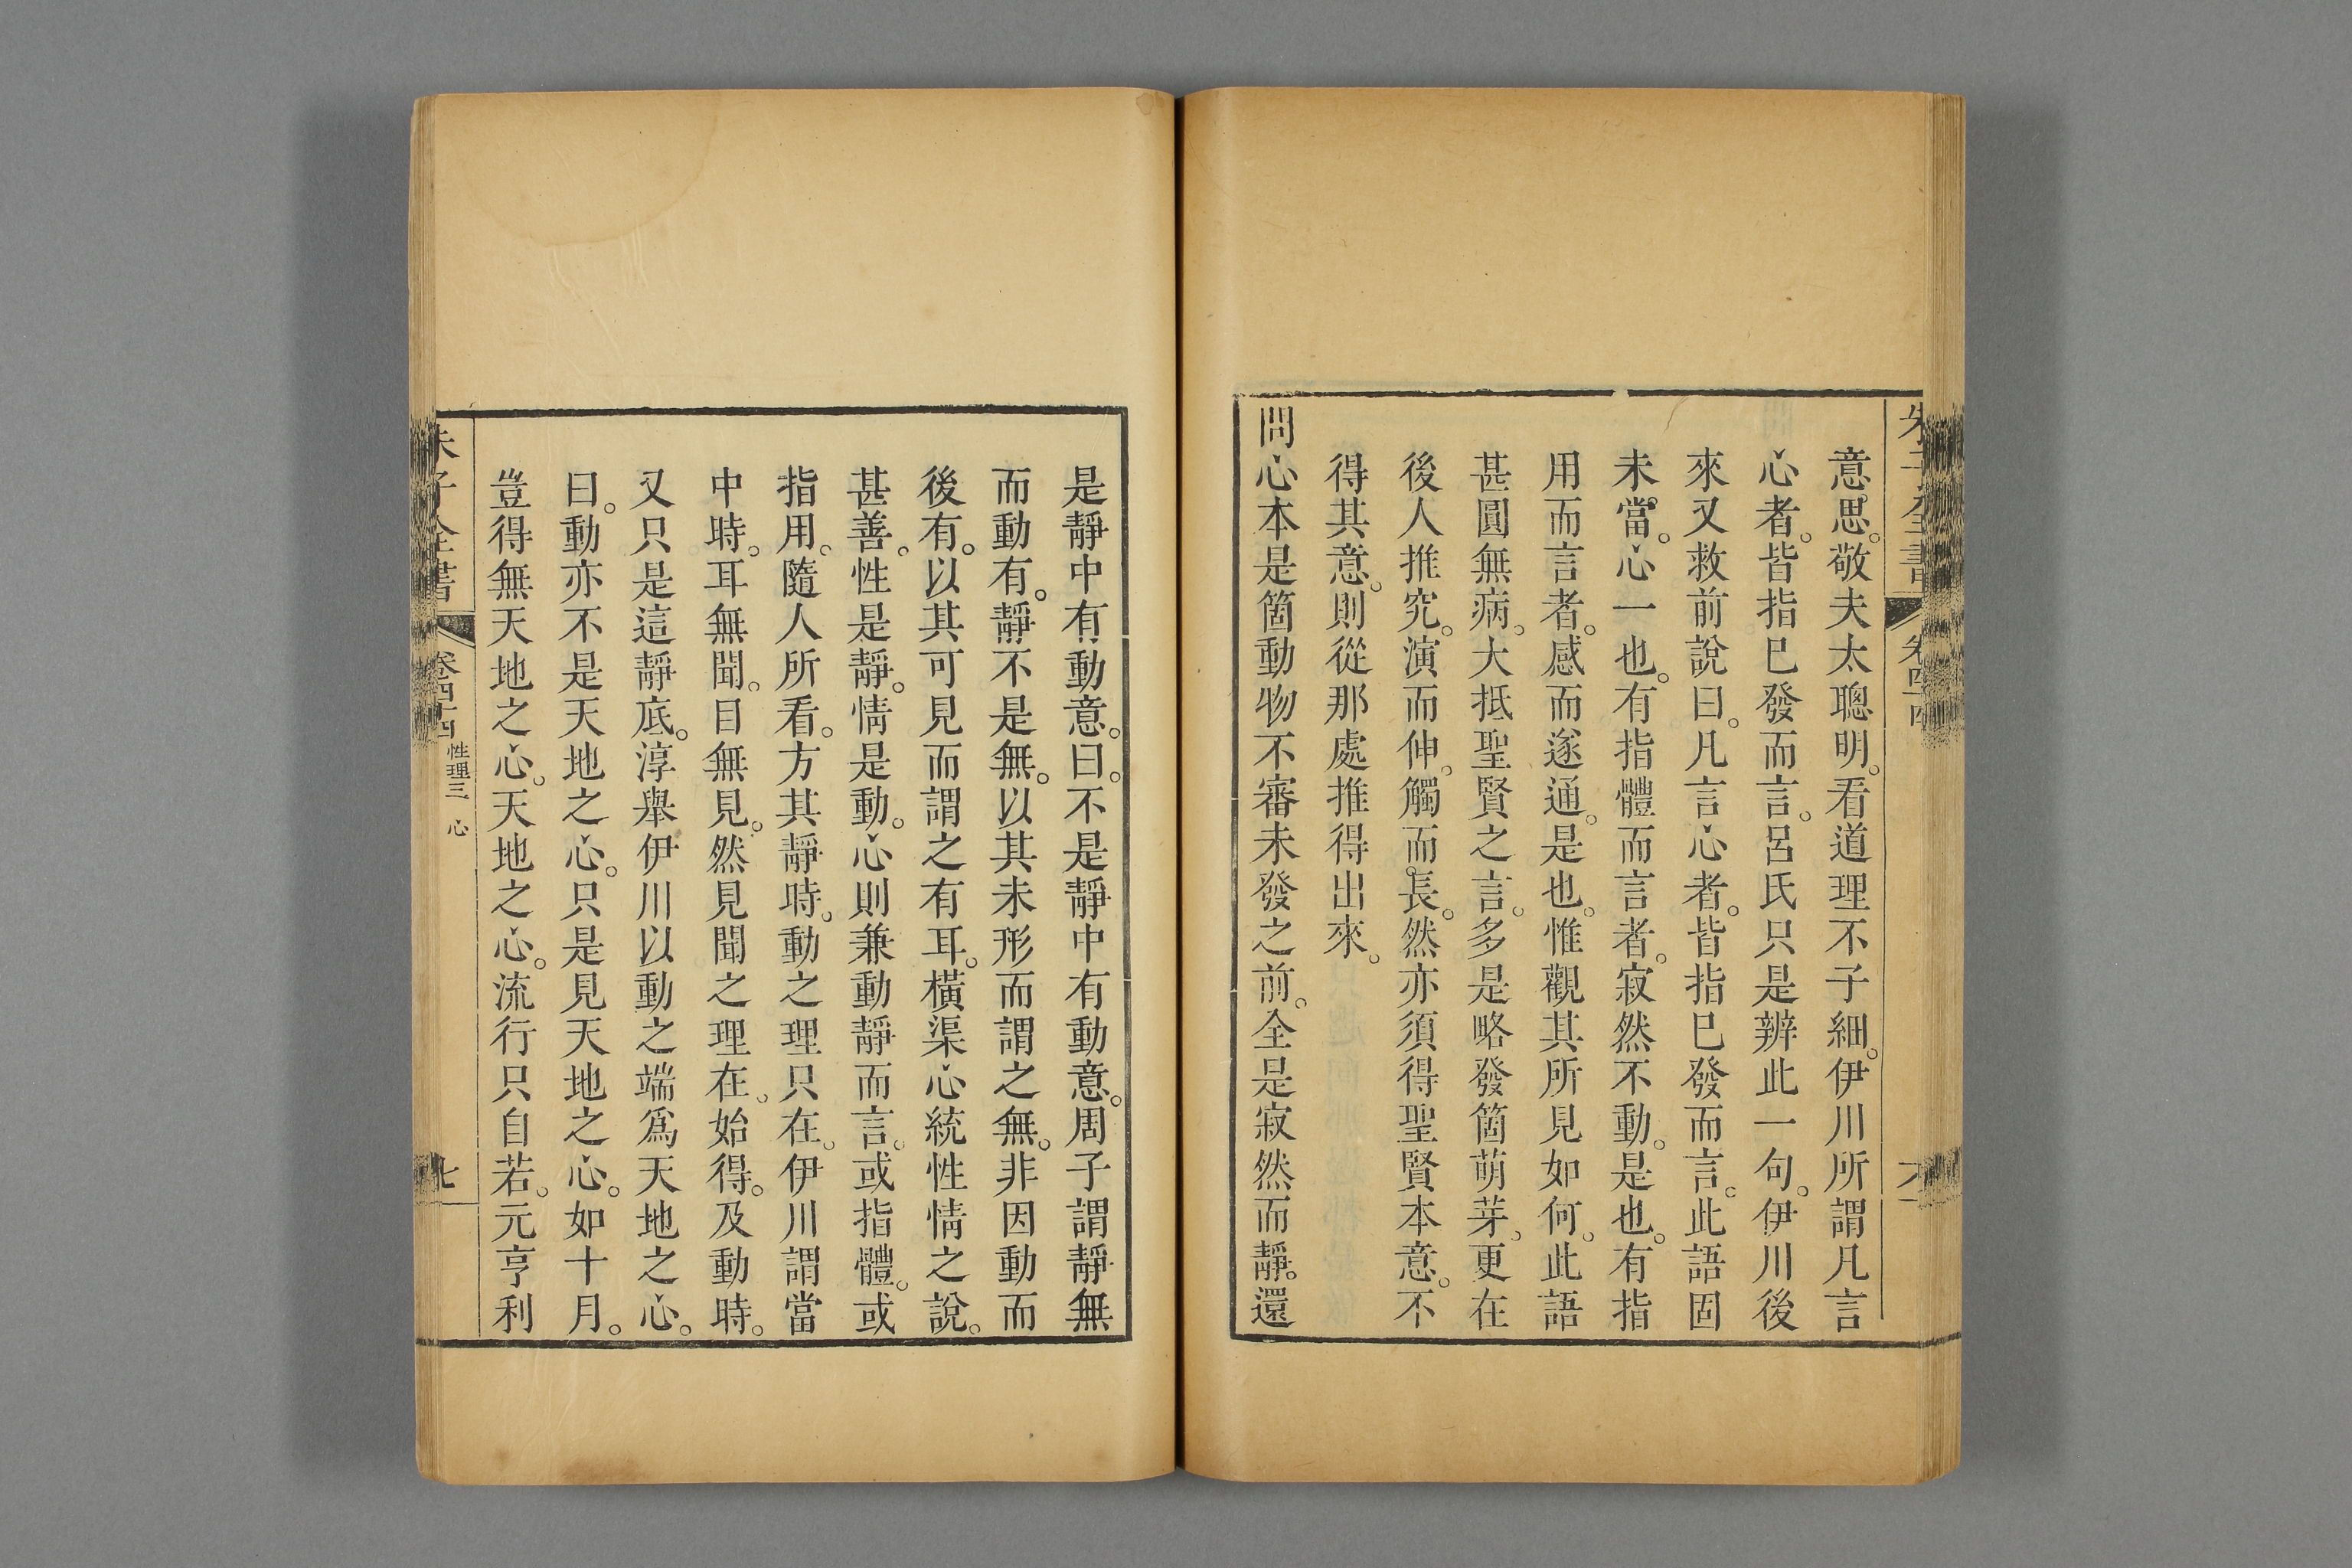 朱子全書 卷四十四
意思。敬夫太聰明。看道理不子細。伊川所謂凡言
心者。皆指巳發而言。呂氏只是辨此一句。伊川後
來又救前說曰。凡言心者。皆指巳發而言。此語固
未當。心一也。有指體而言者。寂然不動。是也。有指
用而言者。感而遂通。是也。惟觀其所見如何。此語
甚圓無病。大抵聖賢之言。多是略發箇萌芽。更在
後人推究。演而伸。觸而長。然亦須得聖賢本意。不
得其意。則從那處推得出來。
問心本是箇動物不審未發之前。全是寂然而靜。還
是靜中有動意。曰。不是靜中有動意。周子謂靜無
而動有。靜不是無。以其未形而謂之無。非因動而
後有。以其可見而謂之有耳。橫渠心統性情之說。
甚善。性是靜。情是動。心則兼動靜而言。或指體。或
指用。隨人所看。方其靜時。動之理只在。伊川謂當
中時。耳無聞。目無見。然見聞之理在。始得。及動時。
又只是這靜底。淳舉伊川以動之端爲天地之心。
曰。動亦不是天地之心。只是見天地之心。如十月。
豈得無天地之心。天地之心。流行只自若。元亨利
朱子全書 卷四十四 性理三 心 七